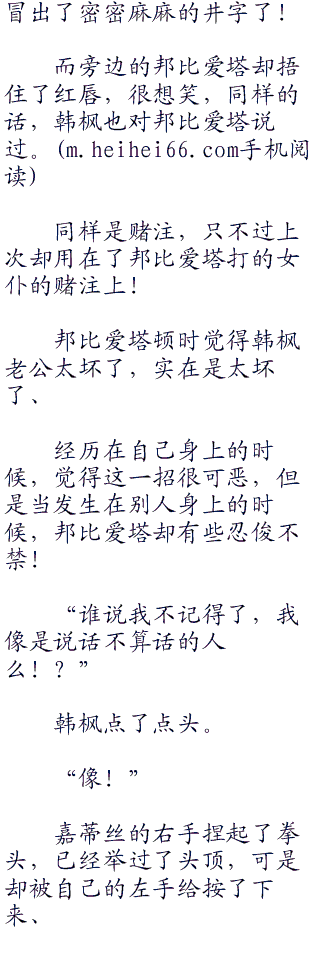 冒出了密密麻麻的井字了！
而旁边的邦比爱塔却捂
住了红唇，很想笑，同样的
话，韩枫也对邦比爱塔说
过。(m.heihei66.com手机阅
读)
同样是赌注，只不过上
次却用在了邦比爱塔打的女
仆的赌注上！
邦比爱塔顿时觉得韩枫
老公太坏了，实在是太坏
了、
经历在自己身上的时
候，觉得这一招很可恶，但
是当发生在别人身上的时
候，邦比爱塔却有些忍俊不
禁！
“谁说我不记得了，我
像是说话不算话的人
么！？”
韩枫点了点头。
“像！”
嘉蒂丝的右手捏起了拳
头，已经举过了头顶，可是
却被自己的左手给按了下
来、